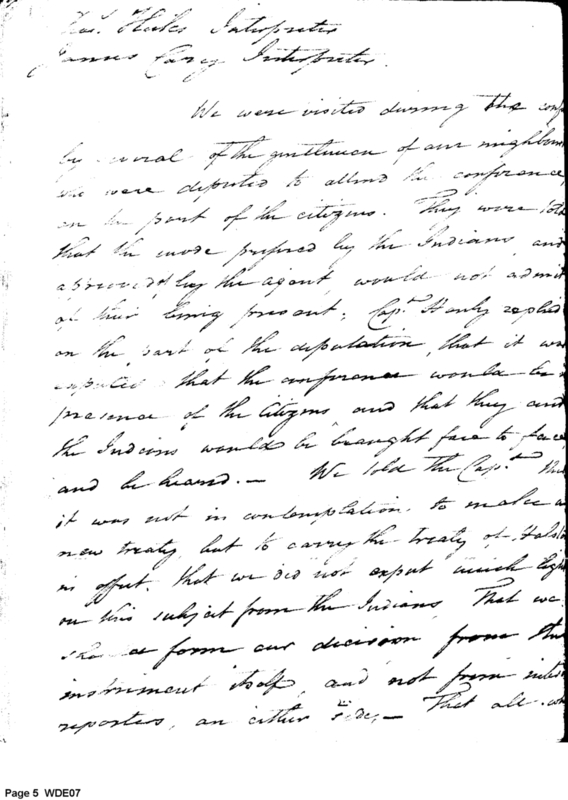 Thos. Hicks Interpreter
James Carey Interpreter.
We were visited during the conf
by several of the gentlemen of our neighbour
who were deputed to attend the conference,
on the part of the citizens. They were told
that the mode proposed by the Indians, and
approved by the agent, would not admit
of their being present; Capt. Hanly replied
on the part of the deputation, that it was
expected that the conference would be
presence of the Citizens and that they and
the Indians would be brought face to face,
and be heard. — We told the Capt. that
it was not in contemplation, to make a
new treaty, but to carry the treaty of Holsto
in effect. that we did not expect much ligh
on this subject from the Indians, That we
form our decision from the
instrument itself, and not from
reporters, on either side, — That all
Page 5 WDE07